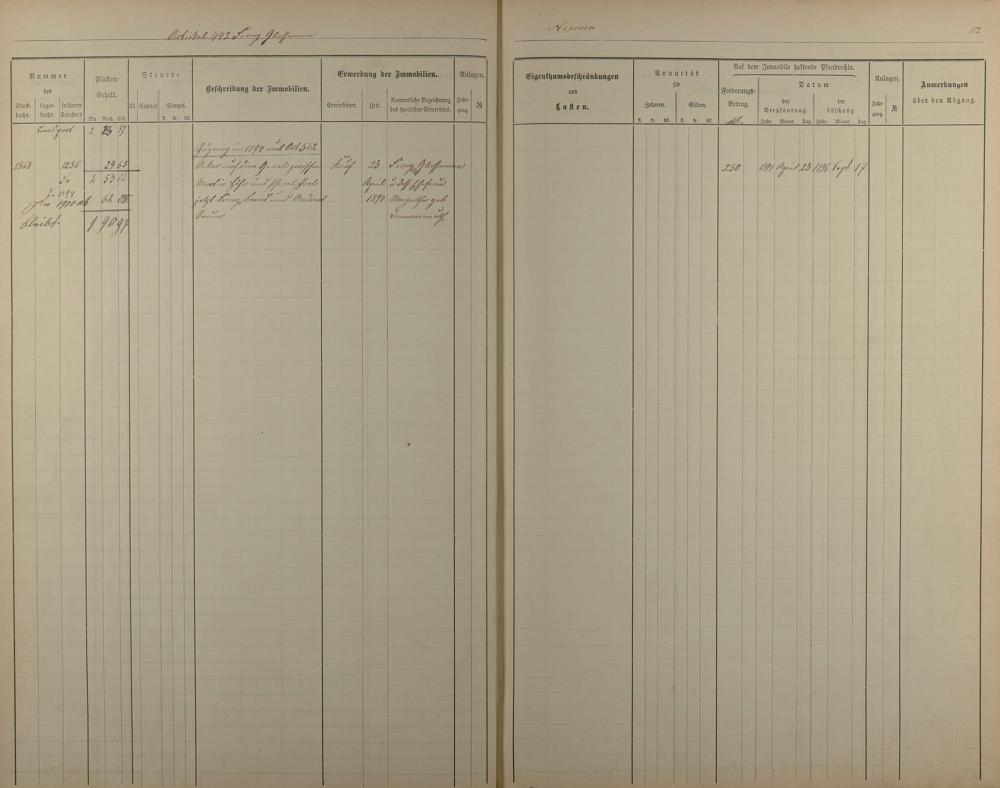 Artikel 442 Franz Glassmann
Nummer
des
Stock-
buchs.
Lager-
buchs
früheren
Catasters
Flächen-
Gehalt.
Mg Rth. Sch.
Steuer-
Cl. Capital
Simpel.
fl. kr. hl.
Beschreibung der Immobilien.
Erwerbung der Immobilien.
Erwerbsart.
Zeit.
Namentliche Bezeichnung
des speciellen Erwerbers.
Anlagen.
Jahr-
gang.
№
Transport 2 23 37
Zugang in 1894 aus Art 562
1563 1256 29 65 Acker auf dem zwischen Kauf 23 Franz Glassmann
Ja 2 53 02 Martin und April u dess Ehefrau
Ja 1894
1900 ab 62 05 jetzt Franz und Andreas 1894 Margaretha geb
bleibt. 1 90 97
112
Eigenthumsbeschränkungen
und
Lasten.
Annuität
für
Zehnten.
fl. kr. hl.
Gülten.
fl. kr. hl.
Auf dem Immobile haftende Pfandrechte.
Forderungs-
Betrag.
Datum
der
Verpfändung.
Jahr. Monat Tag
der
Löschung
Jahr. Monat Tag
Anlagen.
Jahr-
gang.
№
Anmerkungen
über den Abgang.
250 1894 April 23 1896 Sept. 17